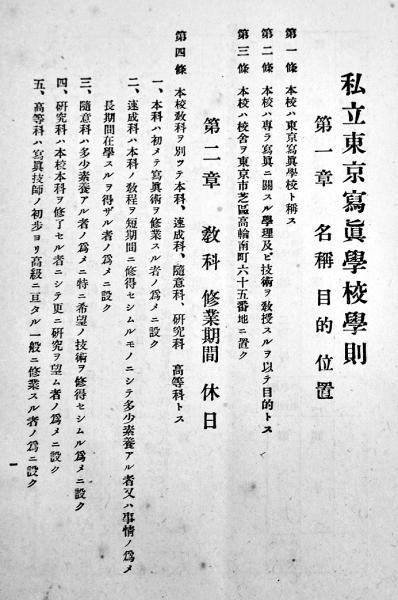 私立東京寫眞學校學則
第一章 名稱 目的 位置
第一條 本校ハ東京寫眞學校ト稱ス
第二條 本校ハ專ラ寫眞ニ關スル學理及ビ技術ヲ敎授スルヲ以テ目的トス
第三條 本校ハ校舍ヲ東京市芝區高輪南町六十五番地ニ置ク
第二章 敎科 修業期間 休日
第四條 本校敎科ヲ別ツテ本科、速成科、隨意科、硏究科 高等科トス
一、本科ハ初メテ寫眞術ヲ修業スル者ノ爲メニ設ク
二、速成科ハ本科ノ敎程ヲ短期間ニ修得セシムルモノニシテ多少素養アル者又ハ事情ノ爲メ
長期間在學スルヲ得ザル者ノ爲メニ設ク
三、隨意科ハ多少素養アル者ノ爲メニ特ニ希望ノ技術ヲ修得セシムル爲メニ設ク
四、硏究科ハ本校本科ヲ修了セル者ニシテ更ニ硏究ヲ望ム者ノ爲メニ設ク
五、高等科ハ寫眞技師ノ初步ヨリ高級ニ亘タル一般ニ修業スル者ノ爲ニ設ク
一